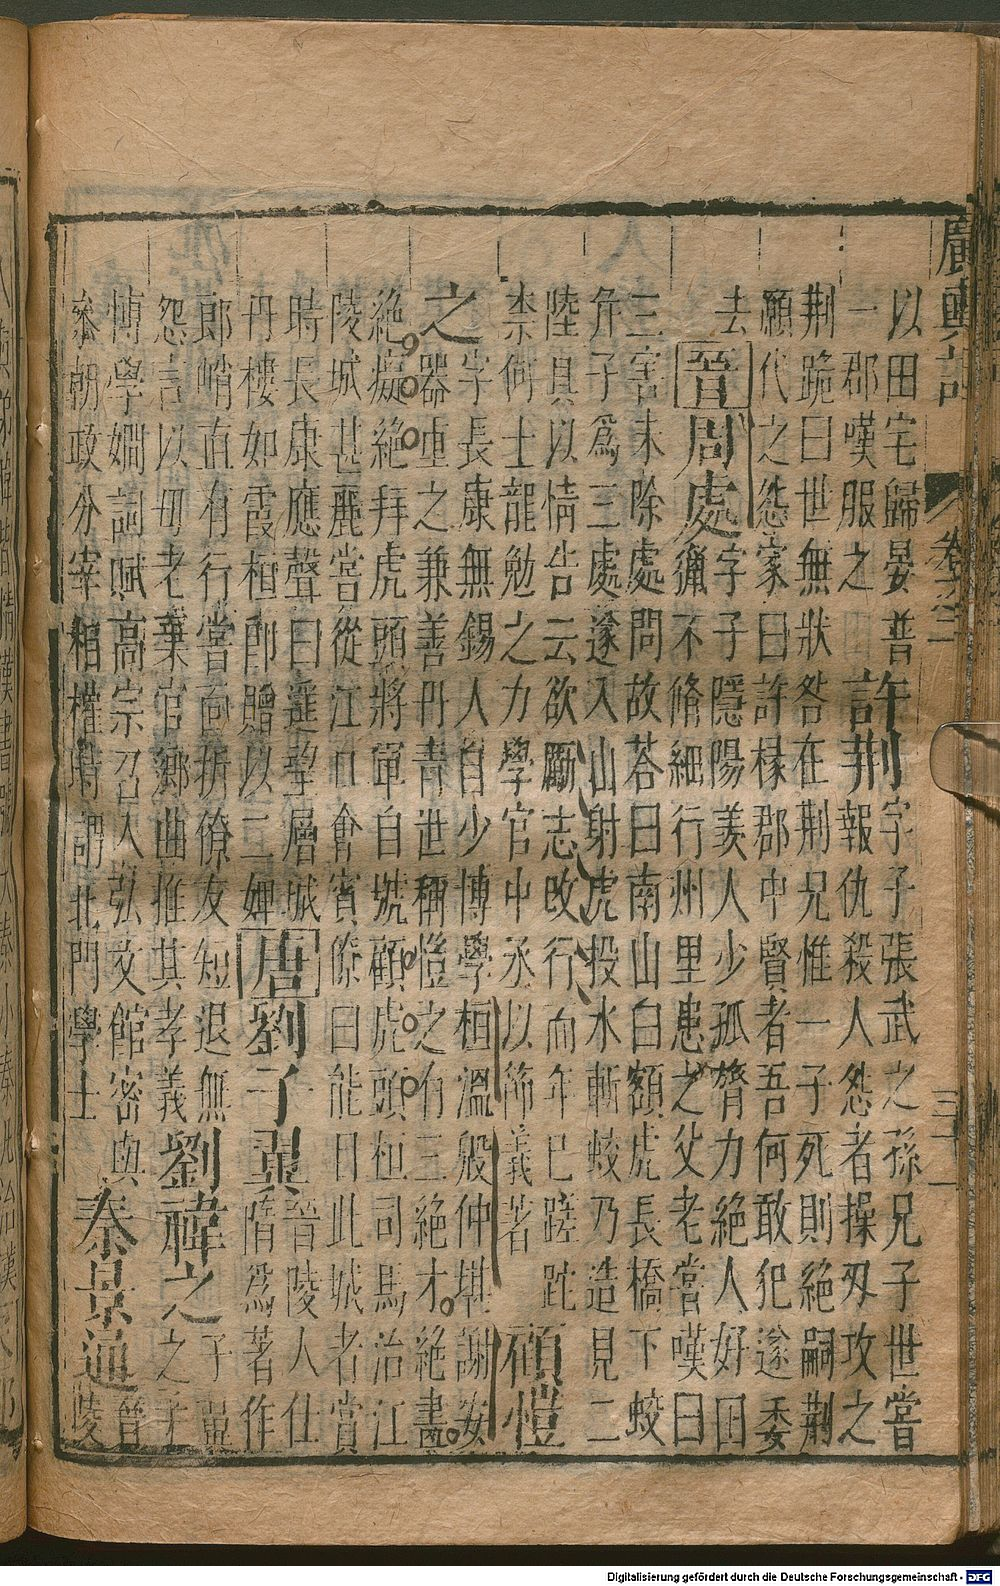 廣輿記 卷之二 三十一
以田宅歸晏普
一郡嘆服之
許荊
字子張武之孫兄子世嘗
報仇殺人怨者操刃攻之
荊跪曰世無狀咎在荊兄惟一子死則絕嗣荊
願代之怨家曰許掾郡中賢者吾何敢犯遂委
去
晉 周處
字子隱陽羨人少孤膂力絕人好田
獵不修細行州里患之父老嘗嘆曰
三害未除處問故荅曰南山白額虎長橋下蛟
并子爲三處遂入山射虎投水斬蛟乃造見二
陸具以情告云欲勵志改行而年已蹉跎
柰何士龍勉之力學官中丞以節義著
顧愷
之
字長康無錫人自少博學桓溫殷仲堪謝安
器重之兼善丹青世稱愷之有三絕才絕畫
絕癡絕拜虎頭將軍自號顧虎頭桓司馬治江
陵城甚麗嘗從江口會賓僚曰能目此城者賞
時長康應聲曰遙望層城
丹樓如霞桓即贈以二婢
唐 劉子翼
晉陵人仕
隋爲著作
郎峭直有行嘗面折僚友短退無
怨言以母老棄官鄉曲推其孝義
劉禕之
子翼
之子
博學嫻詞賦高宗召入弘文館密與
參朝政分宰相權時謂北門學士
秦景通
晉
陵
Digitalisierung gefördert durch die Deutsche Forschungsgemeinschaft - DFG